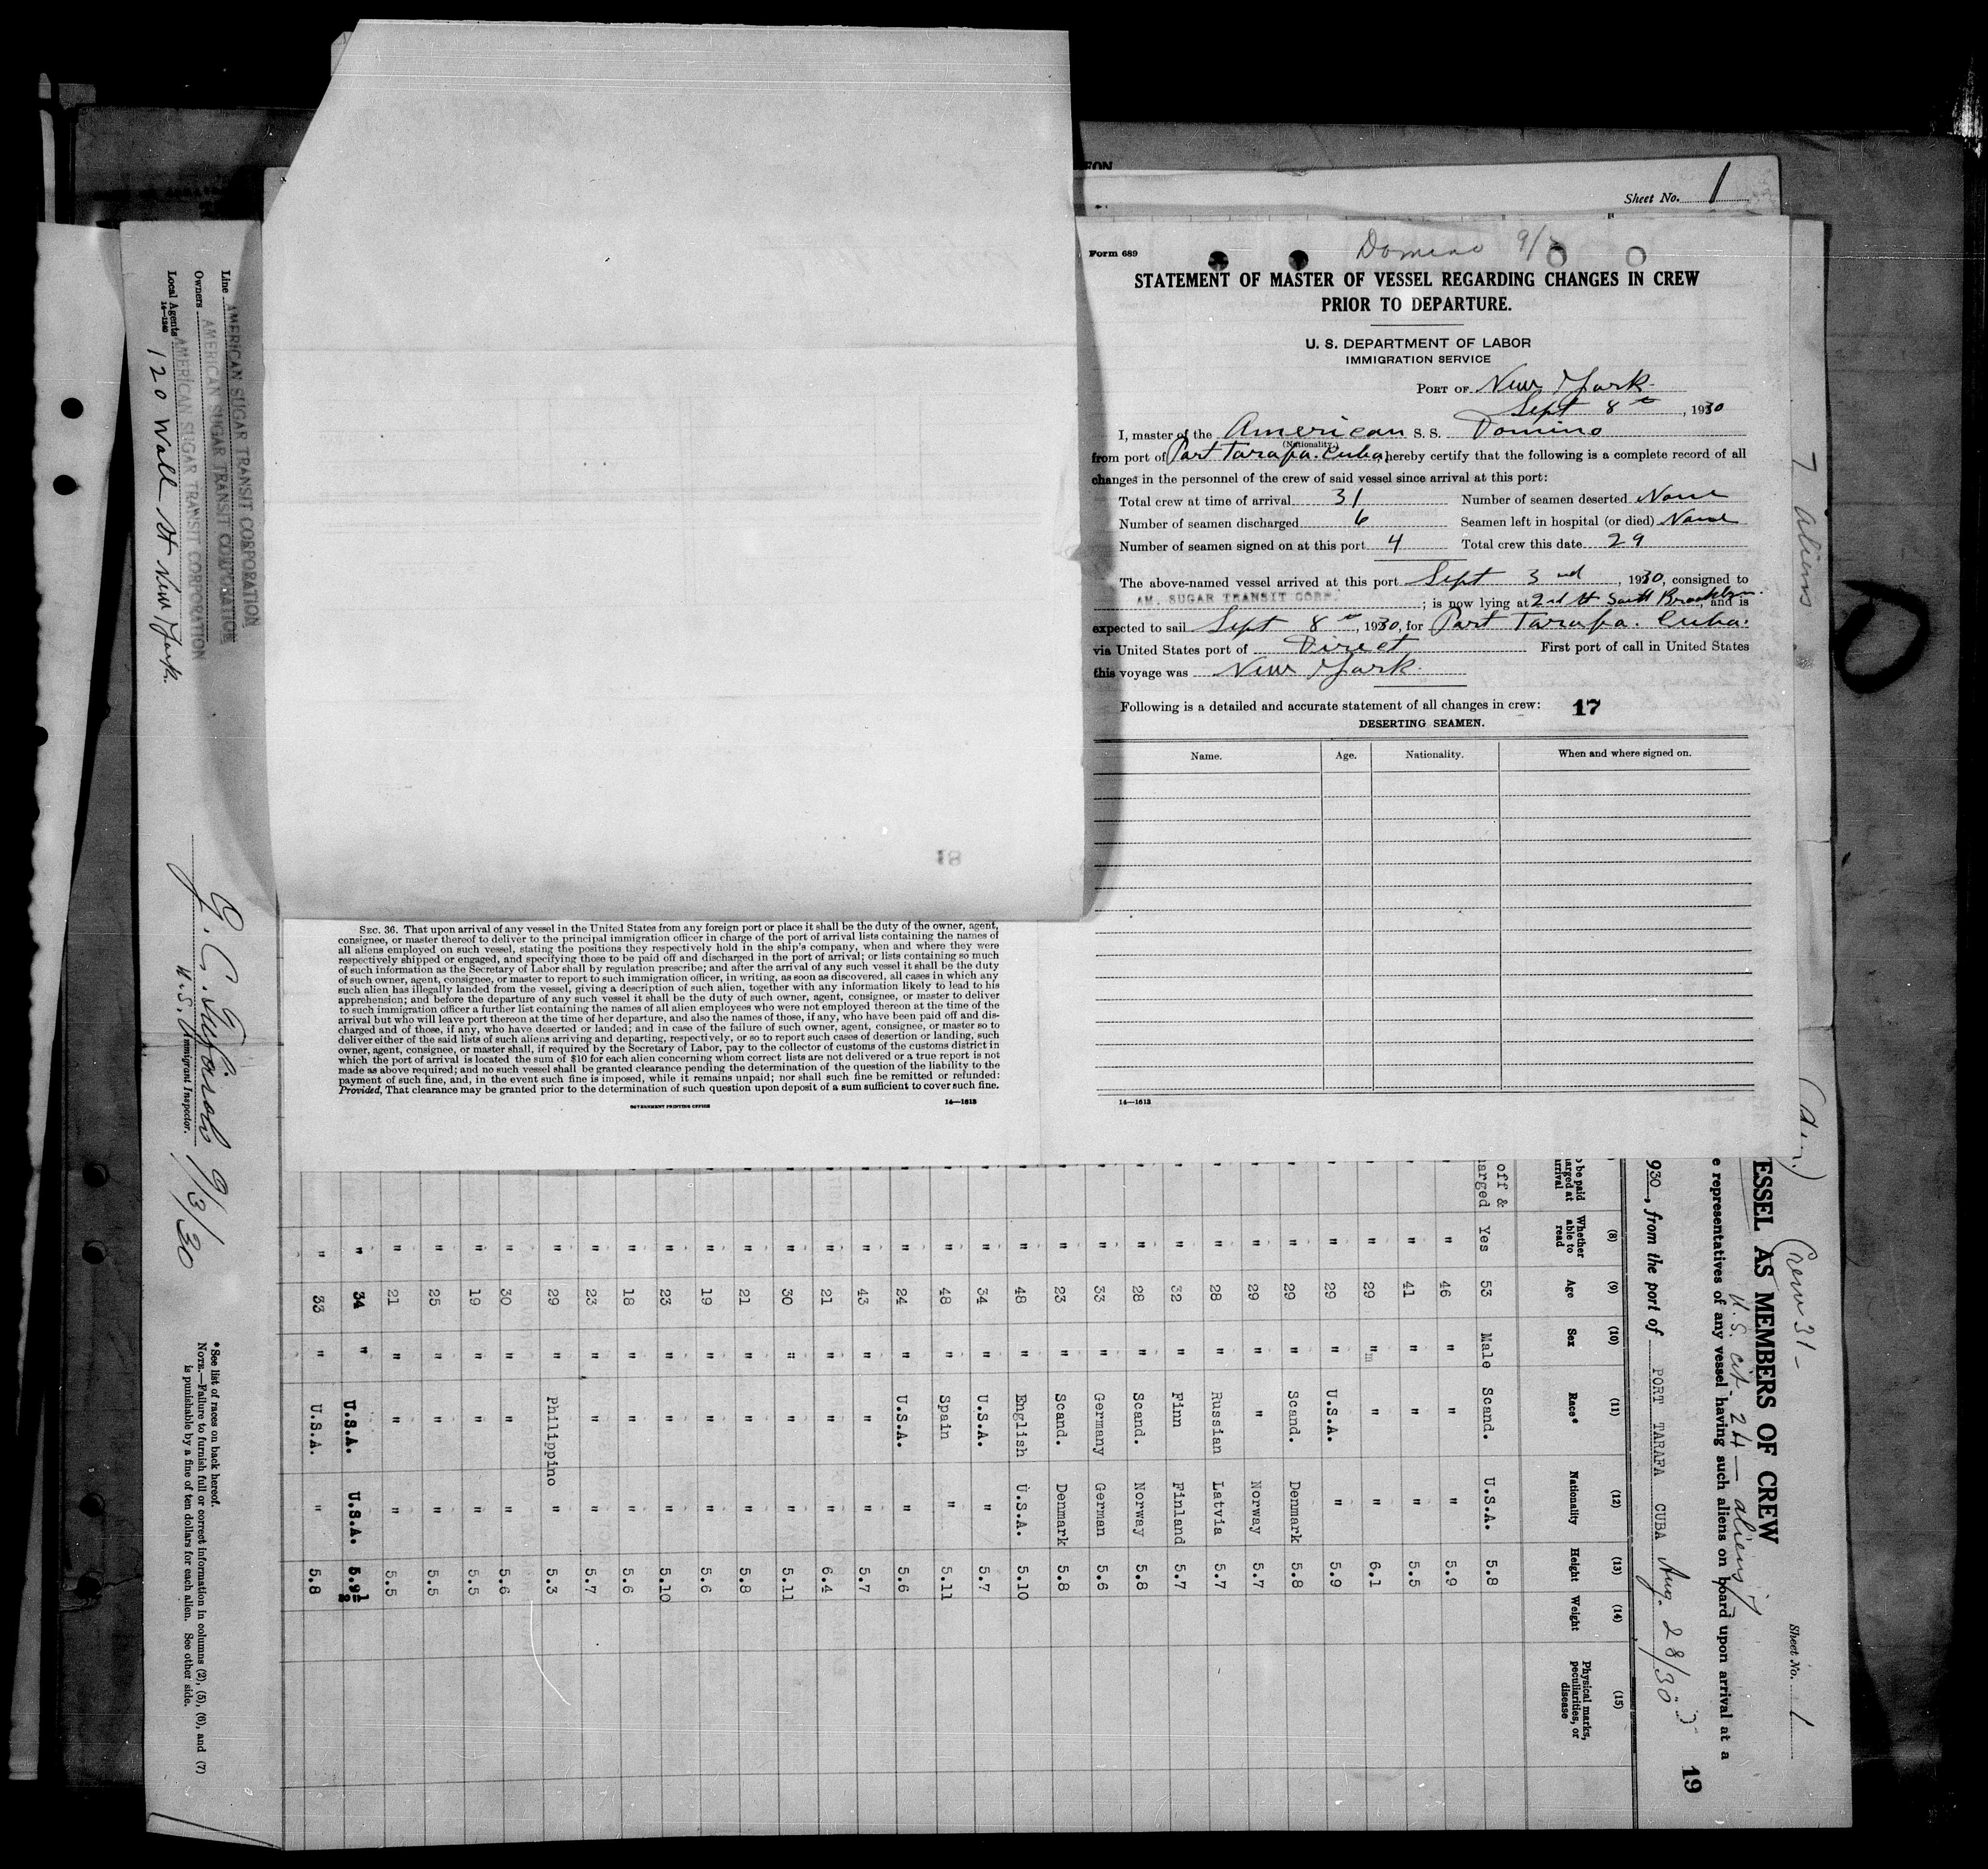 Sheet No. 1
Form 689
Domino 9/
STATEMENT OF MASTER OF VESSEL REGARDING CHANGES IN CREW
PRIOR TO DEPARTURE.
U. S. DEPARTMENT OF LABOR
IMMIGRATION SERVICE
PORT OF New York
Sept 8th, 1930
I, master of the American S. S. Domino
(Nationality.)
from port of Port Tarafa. Cuba, hereby certify that the following is a complete record of all
changes in the personnel of the crew of said vessel since arrival at this port:
Total crew at time of arrival 31 Number of seamen deserted None
Number of seamen discharged 6 Seamen left in hospital (or died) None
Number of seamen signed on at this port 4 Total crew this date 29
The above-named vessel arrived at this port Sept 3rd, 1930, consigned to
AM. SUGAR TRANSIT CORP. ; is now lying at 2nd St South Brooklyn, and is
expected to sail Sept 8th, 1930, for Port Tarafa. Cuba.
via United States port of Direct First port of call in United States
this voyage was New York
Following is a detailed and accurate statement of all changes in crew: 17
DESERTING SEAMEN.
Name. Age. Nationality. When and where signed on.
14—1613
81
SEC. 36. That upon arrival of any vessel in the United States from any foreign port or place it shall be the duty of the owner, agent,
consignee, or master thereof to deliver to the principal immigration officer in charge of the port of arrival lists containing the names of
all aliens employed on such vessel, stating the positions they respectively hold in the ship's company, when and where they were
respectively shipped or engaged, and specifying those to be paid off and discharged in the port of arrival; or lists containing so much
of such information as the Secretary of Labor shall by regulation prescribe; and after the arrival of any such vessel it shall be the duty
of such owner, agent, consignee, or master to report to such immigration officer, in writing, as soon as discovered, all cases in which any
such alien has illegally landed from the vessel, giving a description of such alien, together with any information likely to lead to his
apprehension; and before the departure of any such vessel it shall be the duty of such owner, agent, consignee, or master to deliver
to such immigration officer a further list containing the names of all alien employees who were not employed thereon at the time of the
arrival but who will leave port thereon at the time of her departure, and also the names of those, if any, who have been paid off and dis-
charged and of those, if any, who have deserted or landed; and in case of the failure of such owner, agent, consignee, or master so to
deliver either of the said lists of such aliens arriving and departing, respectively, or so to report such cases of desertion or landing, such
owner, agent, consignee, or master shall, if required by the Secretary of Labor, pay to the collector of customs of the customs district in
which the port of arrival is located the sum of $10 for each alien concerning whom correct lists are not delivered or a true report is not
made as above required; and no such vessel shall be granted clearance pending the determination of the question of the liability to the
payment of such fine, and, in the event such fine is imposed, while it remains unpaid; nor shall such fine be remitted or refunded:
Provided, That clearance may be granted prior to the determination of such question upon deposit of a sum sufficient to cover such fine.
GOVERNMENT PRINTING OFFICE 14—1613
7 aliens
Crew 31 —
Sheet No. 1
U.S. cit - 24 — aliens 7
ESSEL AS MEMBERS OF CREW
e representatives of any vessel having such aliens on board upon arrival at a
930, from the port of PORT TARAFA CUBA Aug. 28/30
19
(8) (9) (10) (11) (12) (13) (14) (15)
o be paid arged at arrival Whether able to read Age Sex Race* Nationality Height Weight Physical marks, peculiarities, or disease
off & arged Yes 53 Male Scand. U.S.A. 5.8
" 46 " " " 5.9
" 41 " " " 5.5
" 29 " " " 6.1
" 29 " U.S.A. " 5.9
" 29 " Scand. Denmark 5.8
" 29 " " Norway 5.7
" 28 " Russian Latvia 5.7
" 32 " Finn Finland 5.7
" 28 " Scand. Norway 5.8
" 33 " Germany German 5.6
" 23 " Scand. Denmark 5.8
" 48 " English U.S.A. 5.10
" 34 " U.S.A. " 5.7
" 48 " Spain " 5.11
" 24 " U.S.A. " 5.6
" 43 " " " 5.7
" 21 " " " 6.4
" 30 " " " 5.11
" 21 " " " 5.8
" 19 " " " 5.6
" 23 " " " 5.10
" 18 " " " 5.6
" 23 " " " 5.7
" 29 " Philippino " 5.3
" 30 " " " 5.6
" 19 " " " 5.5
" 25 " " " 5.5
" 21 " " " 5.5
" 34 " U.S.A. U.S.A. 5.9½
" 33 " U.S.A. " 5.8
Line AMERICAN SUGAR TRANSIT CORPORATION
Owners AMERICAN SUGAR TRANSIT CORPORATION
Local Agents AMERICAN SUGAR TRANSIT CORPORATION
14—1240
120 Wall St New York.
9/3/30
U.S. Immigrant Inspector.
*See list of races on back hereof.
NOTE.—Failure to furnish full or correct information in columns (2), (5), (6), and (7)
is punishable by a fine of ten dollars for each alien. See other side.